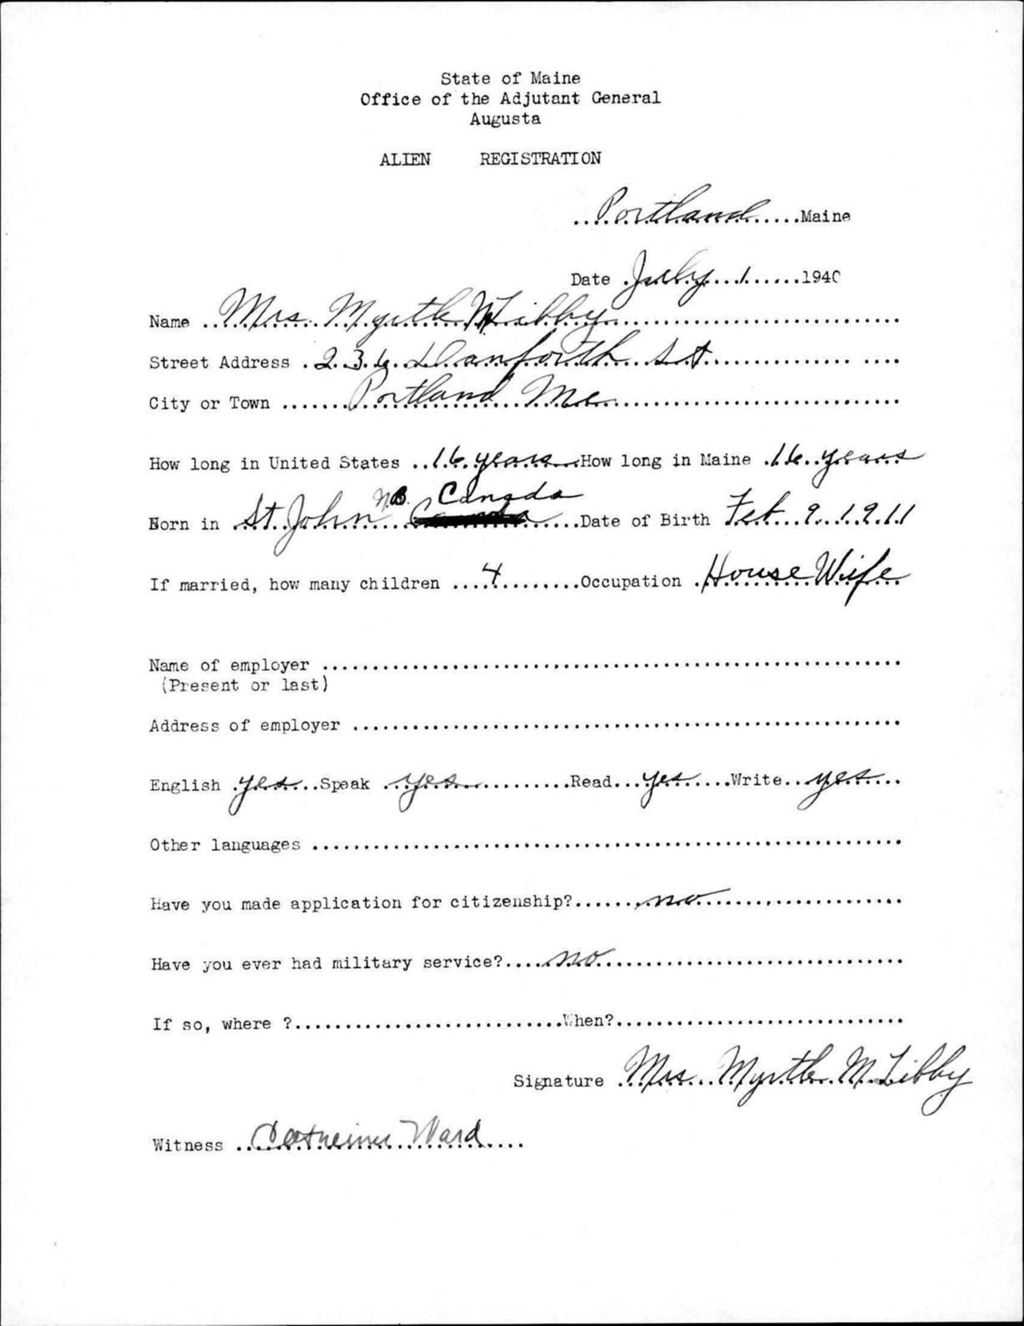 State of Maine
Office of the Adjutant General
Augusta
ALIEN REGISTRATION
Portland Maine
Date July 1 1940
Name Mrs. Myrtle M Libby
Street Address 236 Danforth St
City or Town Portland Me
How long in United States 16 years How long in Maine 16 years
Born in St John N.B. Canada Date of Birth Feb 9. 1911
If married, how many children 4 Occupation House Wife
Name of employer
(Present or last)
Address of employer
English yes Speak yes Read yes Write yes
Other languages
Have you made application for citizenship? no
Have you ever had military service? no
If so, where ? When?
Signature Mrs. Myrtle M. Libby
Witness Ward